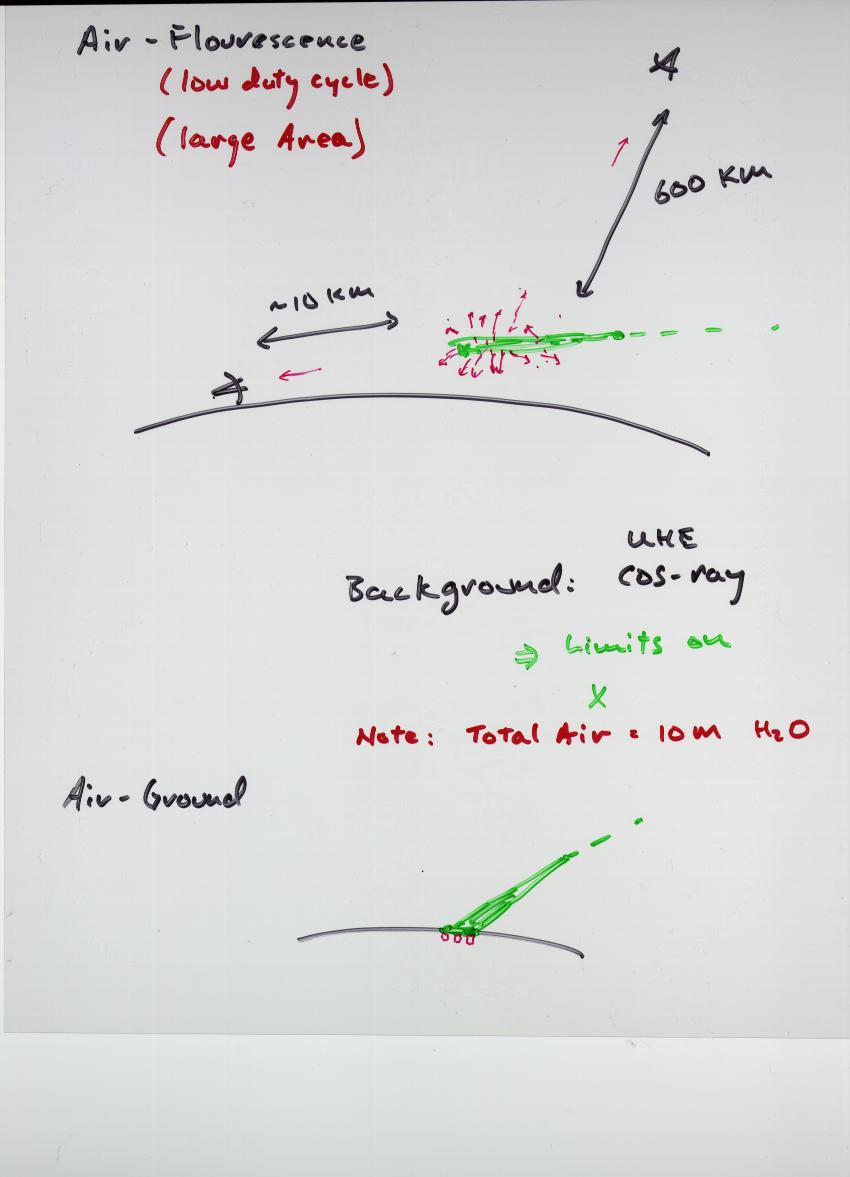 Air - Flourescence
(low duty cycle)
(large Area)
600 KM
~10 KM
Background: UHE
cos-ray
⇒ Limits on
X
Note: Total Air = 10M H₂O
Air - Ground